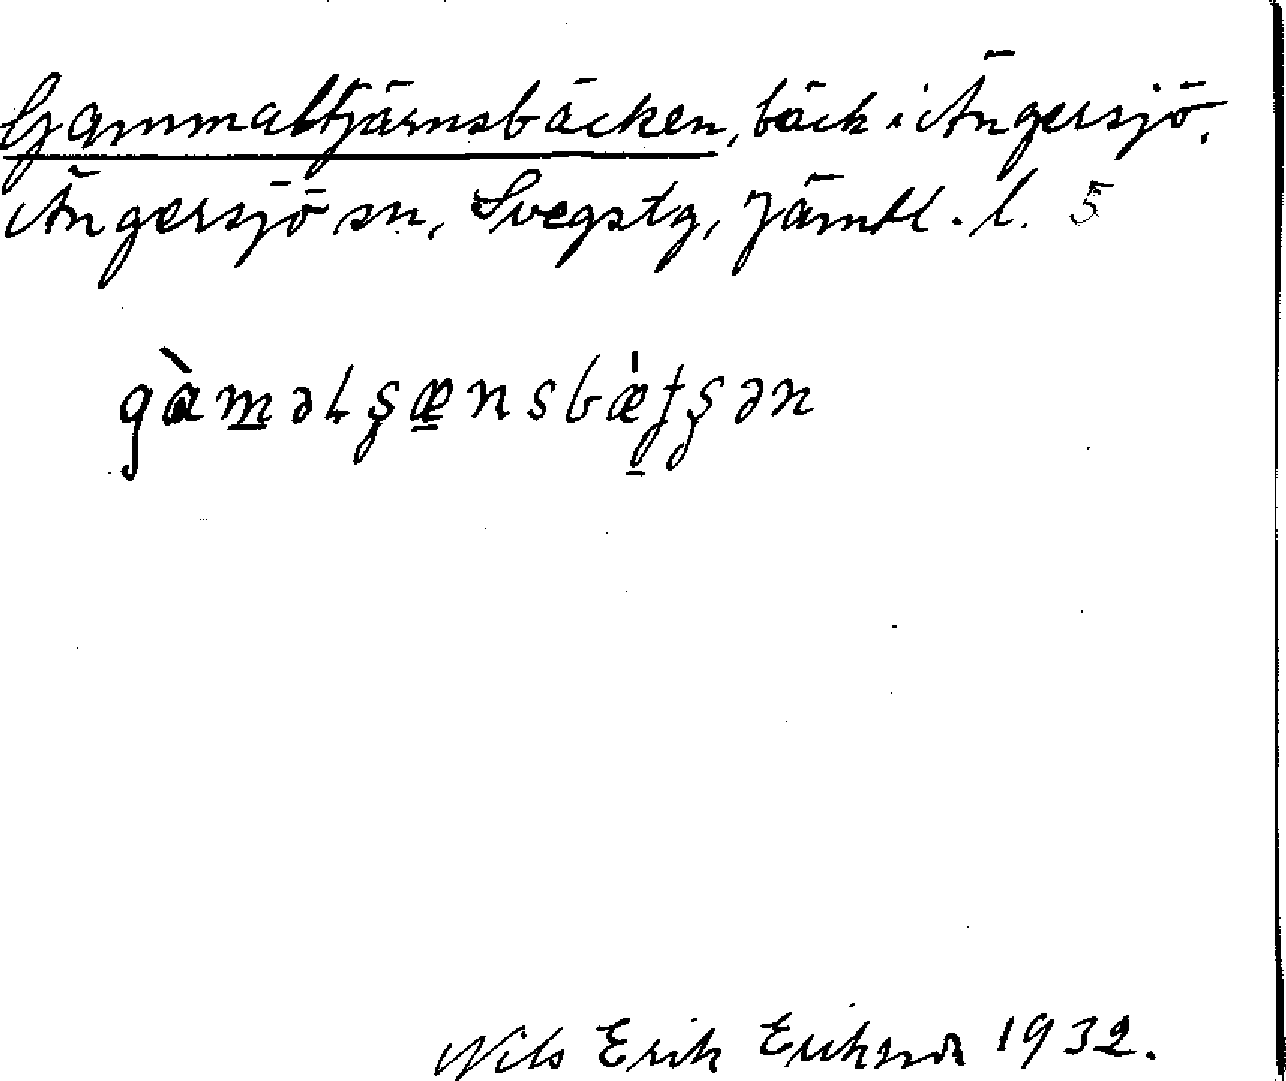 Gammaltjärnsbäcken, bäck i Ängersjö,
Ängersjö sn, Svegs tg, Jämtl. l. 5
Nils Erik Eriksson 1932.